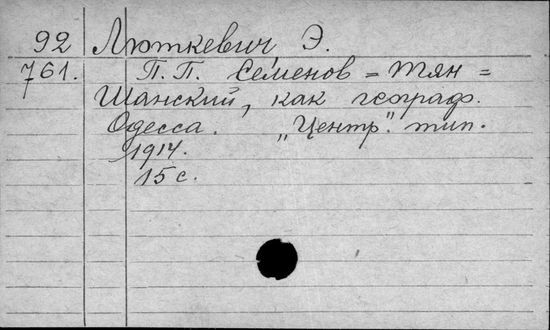 92 Люткевич Э.
761. П. П. Семенов = Тян =
Шанский, как географ.
Одесса. „Центр.". тип.
1914.
15 с.